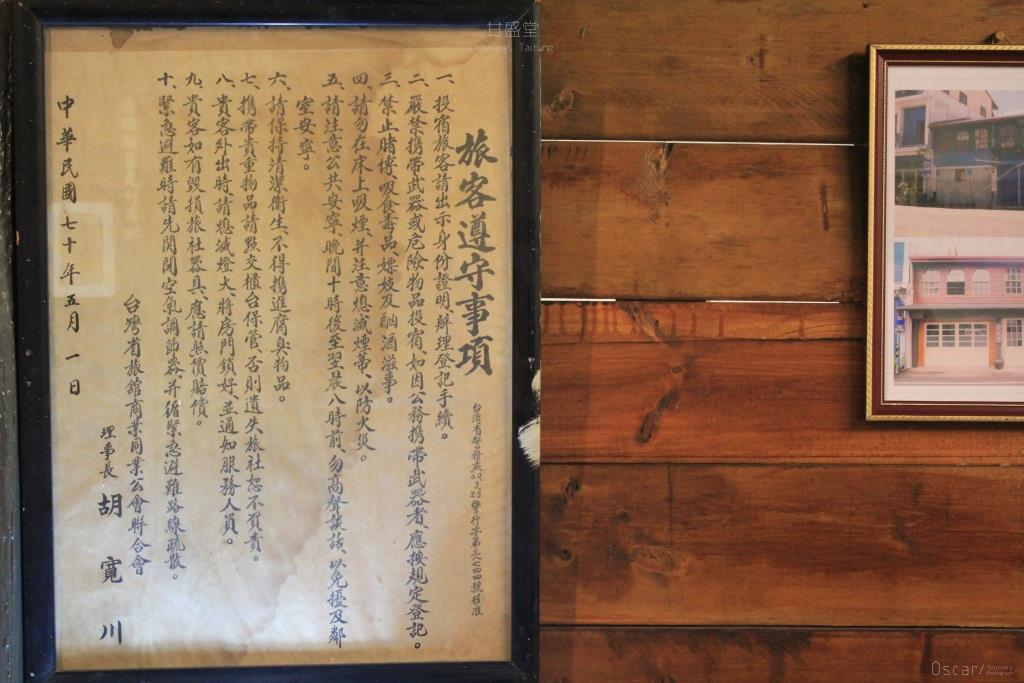 旅客遵守事項
一、投宿旅客請出示身份證明、辦理登記手續。
二、嚴禁携帶武器或危險物品投宿、如因公務携帶武器者、應按規定登記。
三、禁止賭博、吸食毒品、嫖妓及酗酒滋事。
四、請勿在床上吸煙、并注意熄滅煙蒂、以防火災。
五、請注意公共安寧、晚間十時後至翌晨八時前、勿高聲談話、以免擾及鄰
室安寧。
六、請保持清潔衛生、不得携進腐臭物品。
七、携帶貴重物品請點交櫃台保管、否則遺失旅社恕不負責。
八、貴客外出時、請熄滅燈火、將房門鎖好、並通知服務人員。
九、貴客如有毀損旅社器具、應請照價賠償。
十、緊急避難時請先関閉空氣調節器、并循緊急避難路線疏散。
台灣省旅館商業同業公會聯合會
理事長 胡寬川
中華民國七十年五月一日
甘盛堂
Chishang, Taitung
Oscar/Journey
Photograph